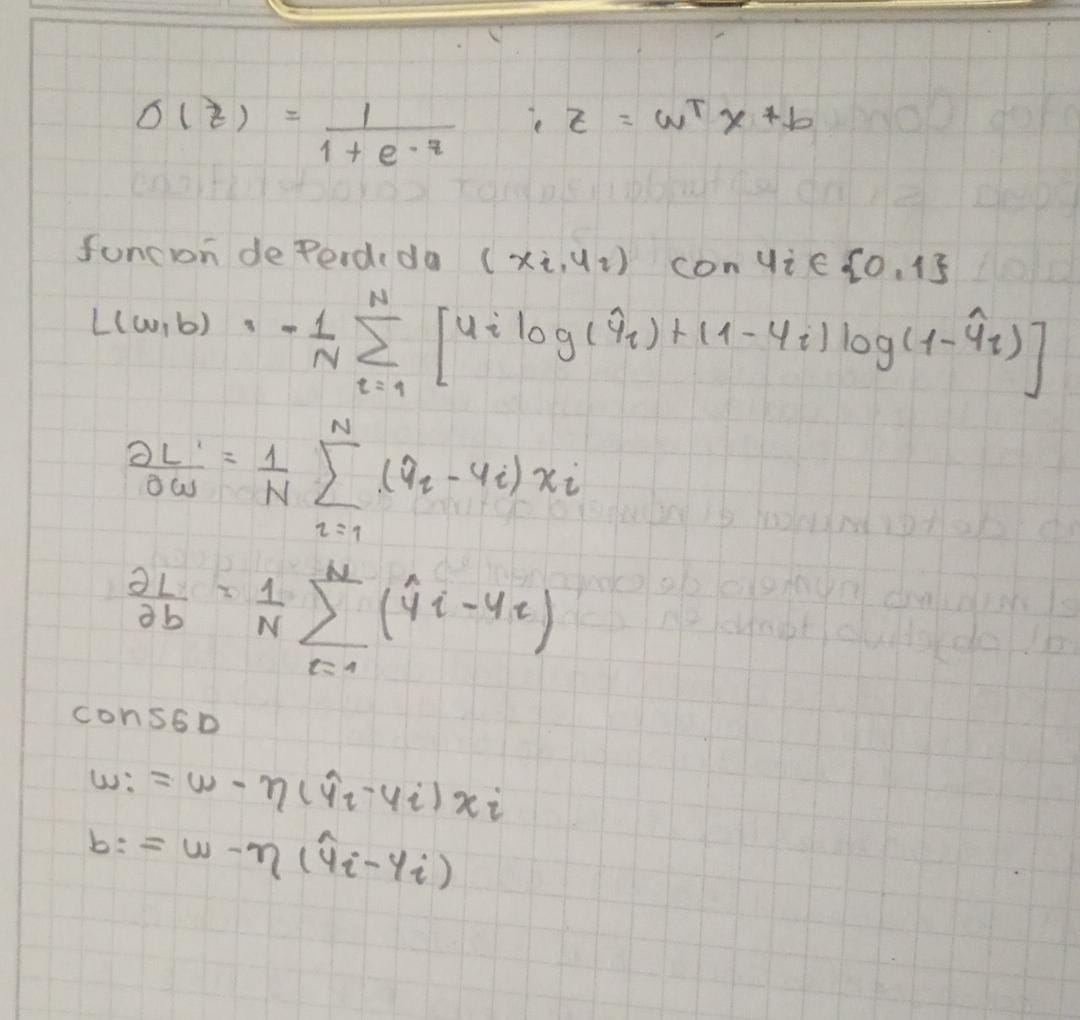 σ(z) = 1/(1 + e^-z) ; z = w^T x + b
función de Perdida (xi, yi) con yi ∈ {0,1}
L(w,b) = -1/N ∑_{i=1}^{N} [yi log(ŷi) + (1 - yi) log(1 - ŷi)]
∂L/∂w = 1/N ∑_{i=1}^{N} (ŷi - yi) xi
∂L/∂b = 1/N ∑_{i=1}^{N} (ŷi - yi)
con SGD
w: = w - η(ŷi - yi) xi
b: = w - η(ŷi - yi)